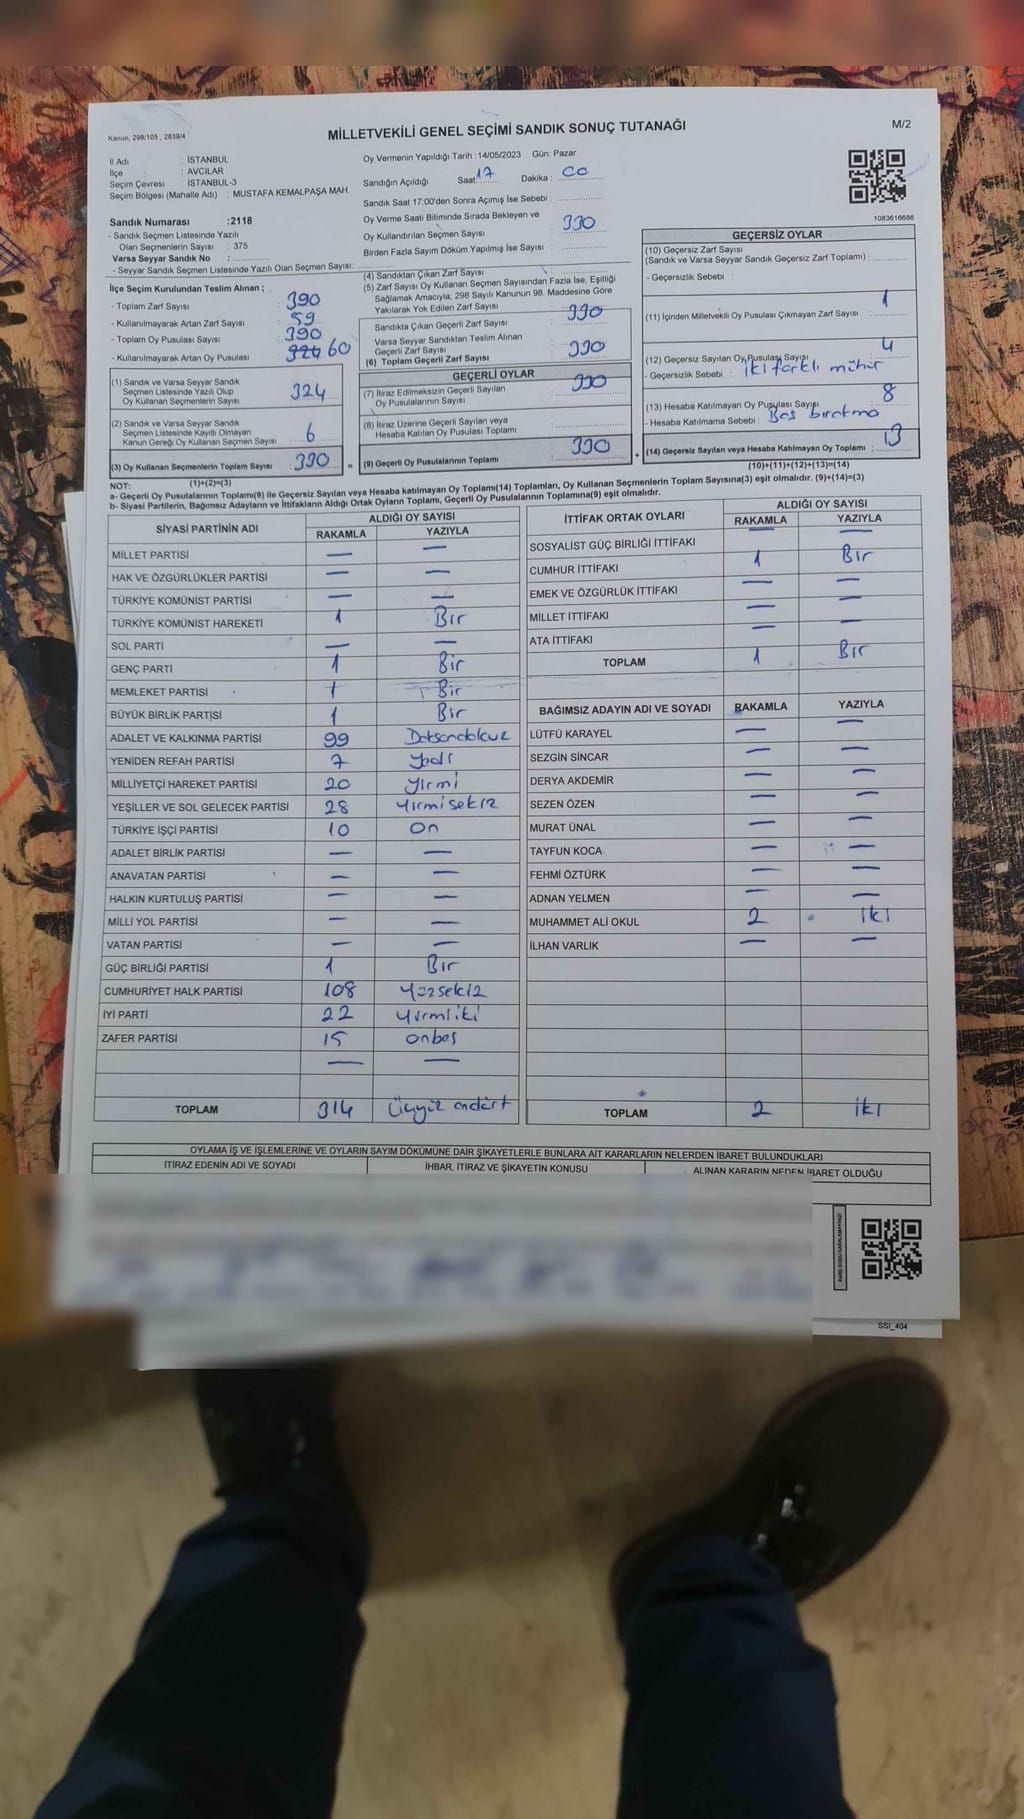 Kanun; 298/105 , 2839/4
MİLLETVEKİLİ GENEL SEÇİMİ SANDIK SONUÇ TUTANAĞI
M/2
İl Adı : İSTANBUL
İlçe : AVCILAR
Seçim Çevresi : İSTANBUL-3
Seçim Bölgesi (Mahalle Adı) : MUSTAFA KEMALPAŞA MAH.
Sandık Numarası :2118
- Sandık Seçmen Listesinde Yazılı
Olan Seçmenlerin Sayısı : 375
Varsa Seyyar Sandık No :
- Seyyar Sandık Seçmen Listesinde Yazılı Olan Seçmen Sayısı:
İlçe Seçim Kurulundan Teslim Alınan ;
- Toplam Zarf Sayısı : 390
- Kullanılmayarak Artan Zarf Sayısı : 59
- Toplam Oy Pusulası Sayısı : 390
- Kullanılmayarak Artan Oy Pusulası : 324 60
(1) Sandık ve Varsa Seyyar Sandık
Seçmen Listesinde Yazılı Olup
Oy Kullanan Seçmenlerin Sayısı : 324
(2) Sandık ve Varsa Seyyar Sandık
Seçmen Listesinde Kayıtlı Olmayan
Kanun Gereği Oy Kullanan Seçmen Sayısı : 6
(3) Oy Kullanan Seçmenlerin Toplam Sayısı : 330
(1)+(2)=(3)
Oy Vermenin Yapıldığı Tarih : 14/05/2023 Gün: Pazar
Sandığın Açıldığı Saat: 17 Dakika:
Sandık Saat 17:00'den Sonra Açımış İse Sebebi :
Oy Verme Saati Bitiminde Sırada Bekleyen ve
Oy Kullandırılan Seçmen Sayısı : 330
Birden Fazla Sayım Döküm Yapılmış İse Sayısı :
(4) Sandıktan Çıkan Zarf Sayısı :
(5) Zarf Sayısı Oy Kullanan Seçmen Sayısından Fazla İse, Eşitliği
Sağlamak Amacıyla, 298 Sayılı Kanunun 98. Maddesine Göre
Yakılarak Yok Edilen Zarf Sayısı :
Sandıkta Çıkan Geçerli Zarf Sayısı : 330
Varsa Seyyar Sandıktan Teslim Alınan
Geçerli Zarf Sayısı :
(6) Toplam Geçerli Zarf Sayısı : 330
GEÇERLİ OYLAR
(7) İtiraz Edilmeksizin Geçerli Sayılan
Oy Pusulalarının Sayısı : 330
(8) İtiraz Üzerine Geçerli Sayılan veya
Hesaba Katılan Oy Pusulası Toplamı :
= (9) Geçerli Oy Pusulalarının Toplamı : 330
1083616686
GEÇERSİZ OYLAR
(10) Geçersiz Zarf Sayısı
(Sandık ve Varsa Seyyar Sandık Geçersiz Zarf Toplamı) :
- Geçersizlik Sebebi :
(11) İçinden Milletvekili Oy Pusulası Çıkmayan Zarf Sayısı : 1
(12) Geçersiz Sayılan Oy Pusulası Sayısı : 4
- Geçersizlik Sebebi : İki farklı mühür
(13) Hesaba Katılmayan Oy Pusulası Sayısı : 8
- Hesaba Katılmama Sebebi : Boş bırakma
+ (14) Geçersiz Sayılan veya Hesaba Katılmayan Oy Toplamı : 13
(10)+(11)+(12)+(13)=(14)
NOT:
a- Geçerli Oy Pusulalarının Toplamı(9) ile Geçersiz Sayılan veya Hesaba katılmayan Oy Toplamı(14) Toplamları, Oy Kullanan Seçmenlerin Toplam Sayısına(3) eşit olmalıdır. (9)+(14)=(3)
b- Siyasi Partilerin, Bağımsız Adayların ve İttifakların Aldığı Ortak Oyların Toplamı, Geçerli Oy Pusulalarının Toplamına(9) eşit olmalıdır.
SİYASİ PARTİNİN ADI
ALDIĞI OY SAYISI
RAKAMLA YAZIYLA
MİLLET PARTİSİ — —
HAK VE ÖZGÜRLÜKLER PARTİSİ — —
TÜRKİYE KOMÜNİST PARTİSİ — —
TÜRKİYE KOMÜNİST HAREKETİ 1 Bir
SOL PARTİ — —
GENÇ PARTİ 1 Bir
MEMLEKET PARTİSİ 1 Bir
BÜYÜK BİRLİK PARTİSİ 1 Bir
ADALET VE KALKINMA PARTİSİ 99 Doksandokuz
YENİDEN REFAH PARTİSİ 7 Yedi
MİLLİYETÇİ HAREKET PARTİSİ 20 Yirmi
YEŞİLLER VE SOL GELECEK PARTİSİ 28 Yirmisekiz
TÜRKİYE İŞÇİ PARTİSİ 10 On
ADALET BİRLİK PARTİSİ — —
ANAVATAN PARTİSİ — —
HALKIN KURTULUŞ PARTİSİ — —
MİLLİ YOL PARTİSİ — —
VATAN PARTİSİ — —
GÜÇ BİRLİĞİ PARTİSİ 1 Bir
CUMHURİYET HALK PARTİSİ 108 Yüzsekiz
İYİ PARTİ 22 Yirmiiki
ZAFER PARTİSİ 15 Onbeş
— —
TOPLAM 314 Üçyüz ondört
İTTİFAK ORTAK OYLARI
ALDIĞI OY SAYISI
RAKAMLA YAZIYLA
SOSYALİST GÜÇ BİRLİĞİ İTTİFAKI — —
CUMHUR İTTİFAKI 1 Bir
EMEK VE ÖZGÜRLÜK İTTİFAKI — —
MİLLET İTTİFAKI — —
ATA İTTİFAKI — —
TOPLAM 1 Bir
BAĞIMSIZ ADAYIN ADI VE SOYADI RAKAMLA YAZIYLA
LÜTFÜ KARAYEL — —
SEZGİN SİNCAR — —
DERYA AKDEMİR — —
SEZEN ÖZEN — —
MURAT ÜNAL — —
TAYFUN KOCA — —
FEHMİ ÖZTÜRK — —
ADNAN YELMEN — —
MUHAMMET ALİ OKUL 2 İki
İLHAN VARLIK — —
TOPLAM 2 İki
OYLAMA İŞ VE İŞLEMLERİNE VE OYLARIN SAYIM DÖKÜMÜNE DAİR ŞİKAYETLERLE BUNLARA AİT KARARLARIN NELERDEN İBARET BULUNDUKLARI
İTİRAZ EDENİN ADI VE SOYADI
İHBAR, İTİRAZ VE ŞİKAYETİN KONUSU
ALINAN KARARIN NEDEN İBARET OLDUĞU
KARE KODU KARALAMAYINIZ!
SSI_404